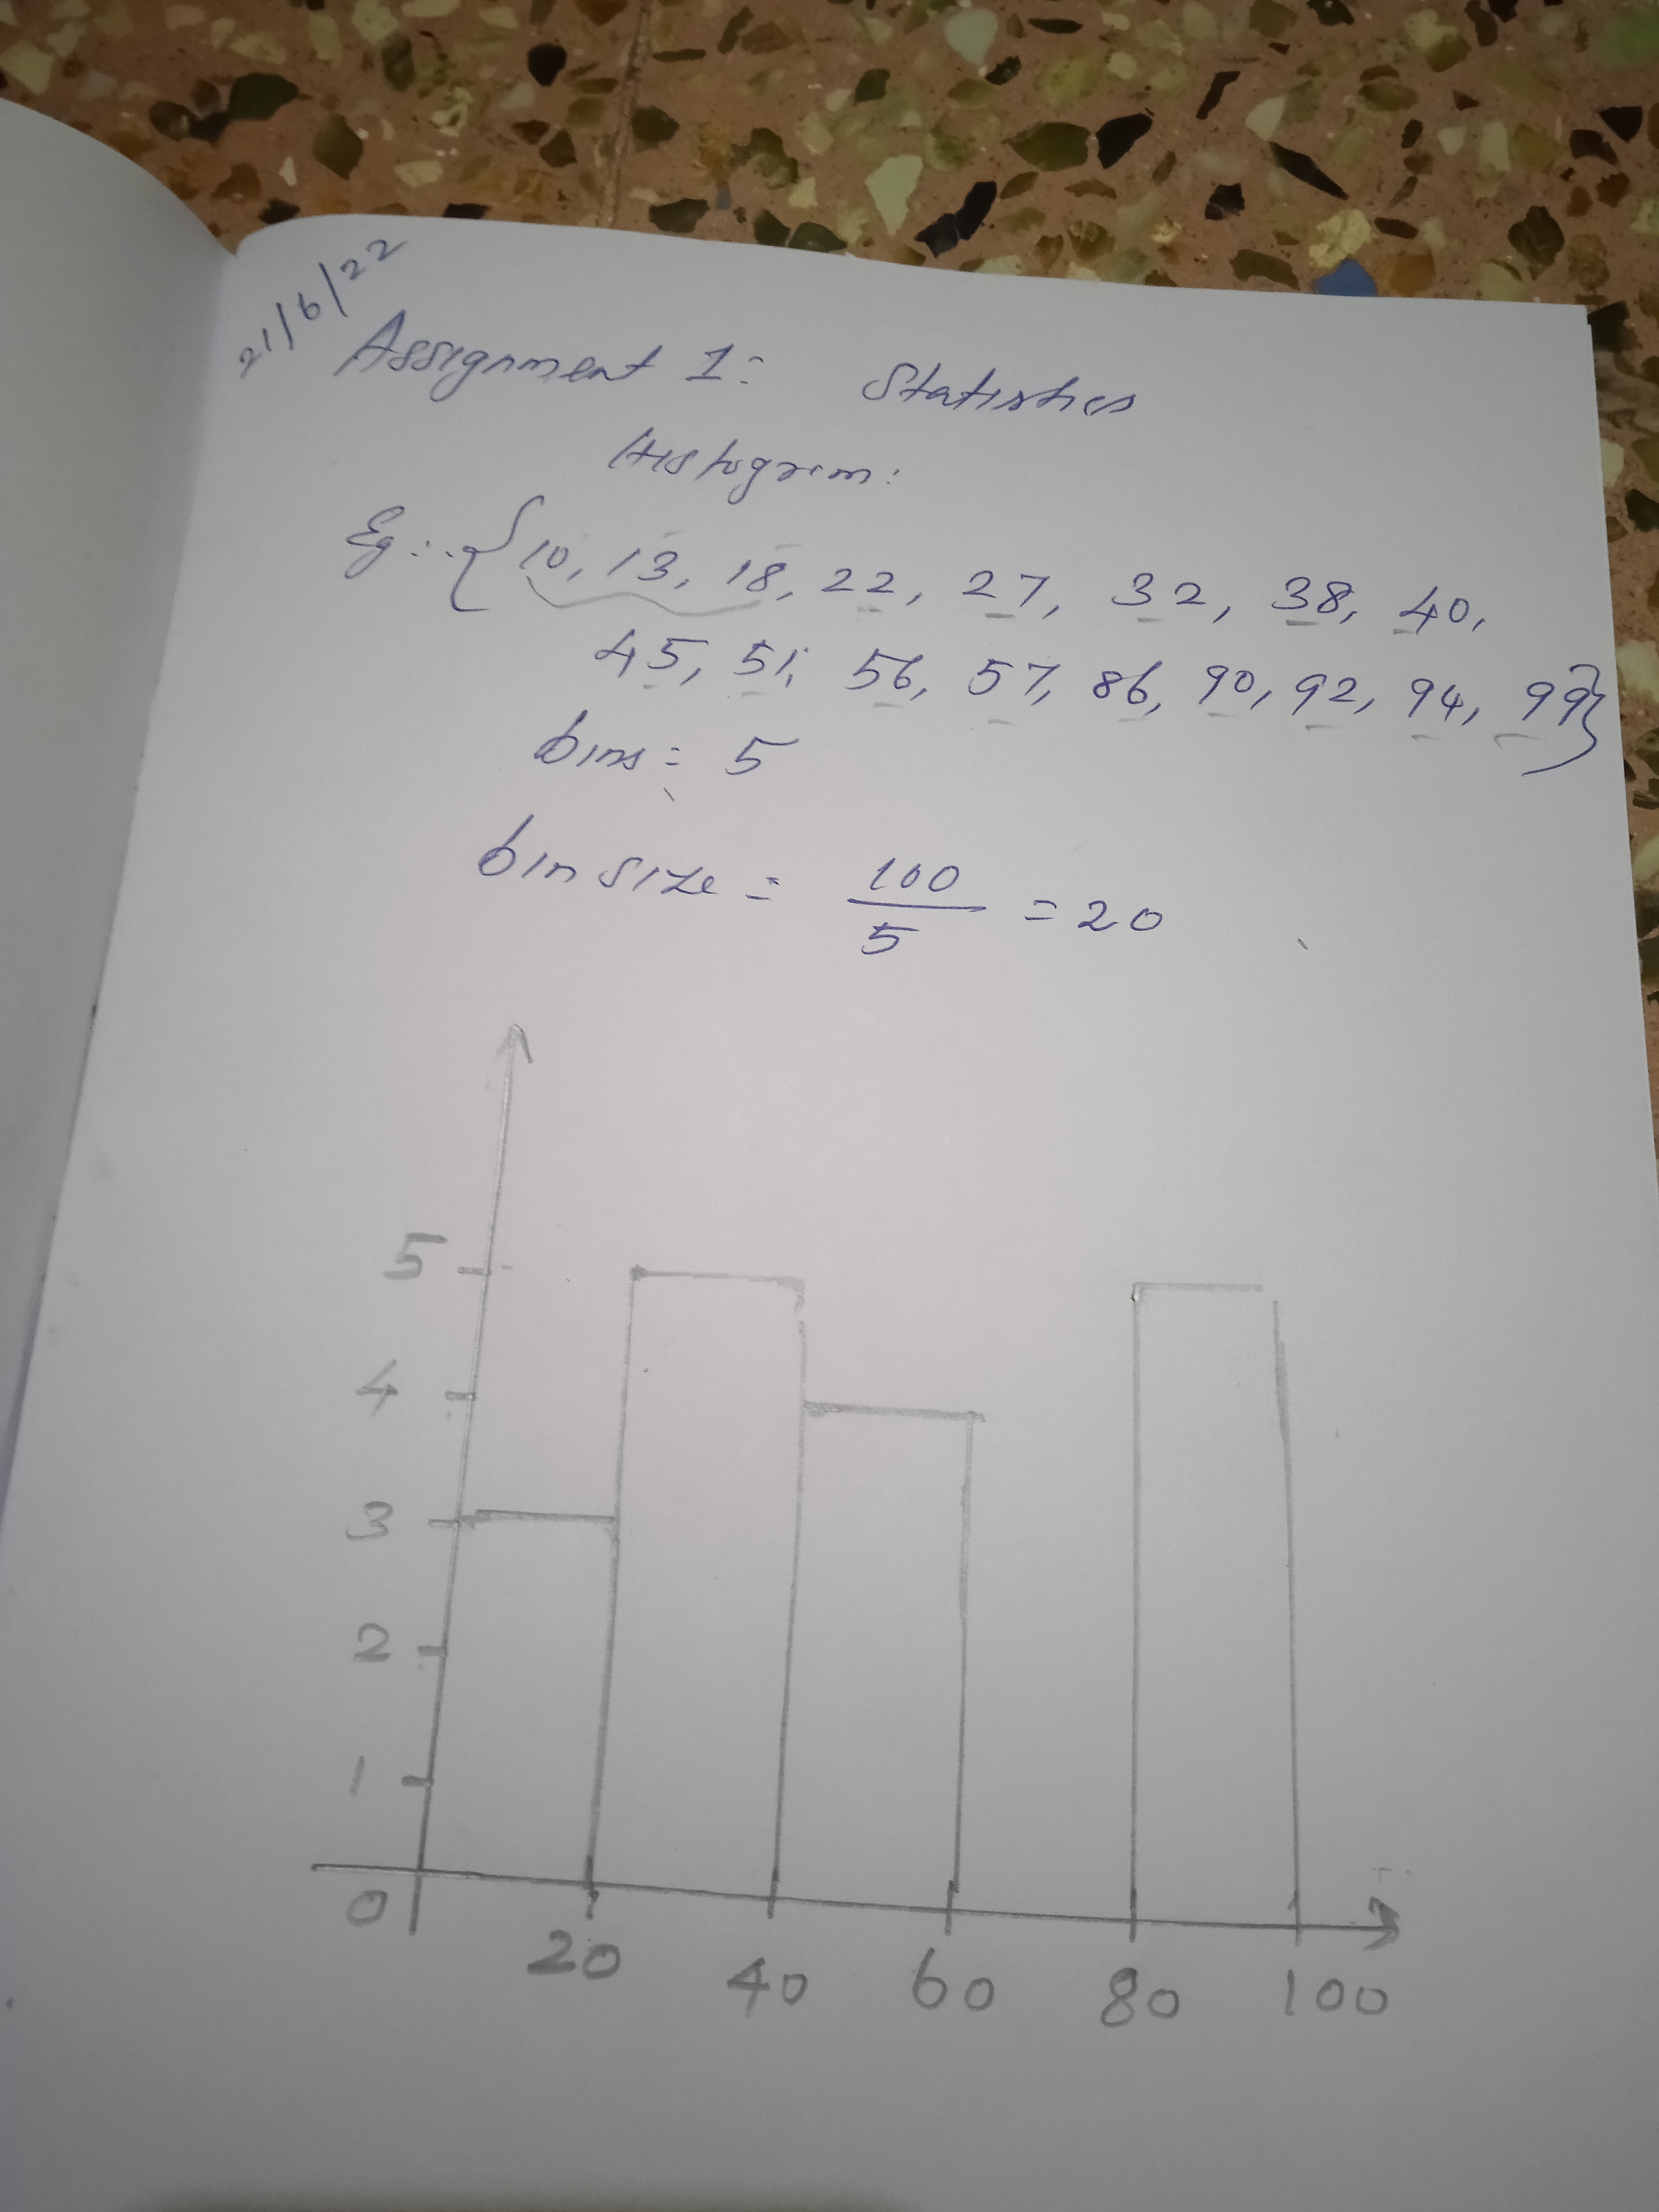 21/6/22
Assignment 1: Statistics
Histogram:
Eg:- {10, 13, 18, 22, 27, 32, 38, 40,
45, 51, 56, 57, 86, 90, 92, 94, 99}
bins = 5
bin size = 100/5 = 20
5
4
3
2
1
0 20 40 60 80 100